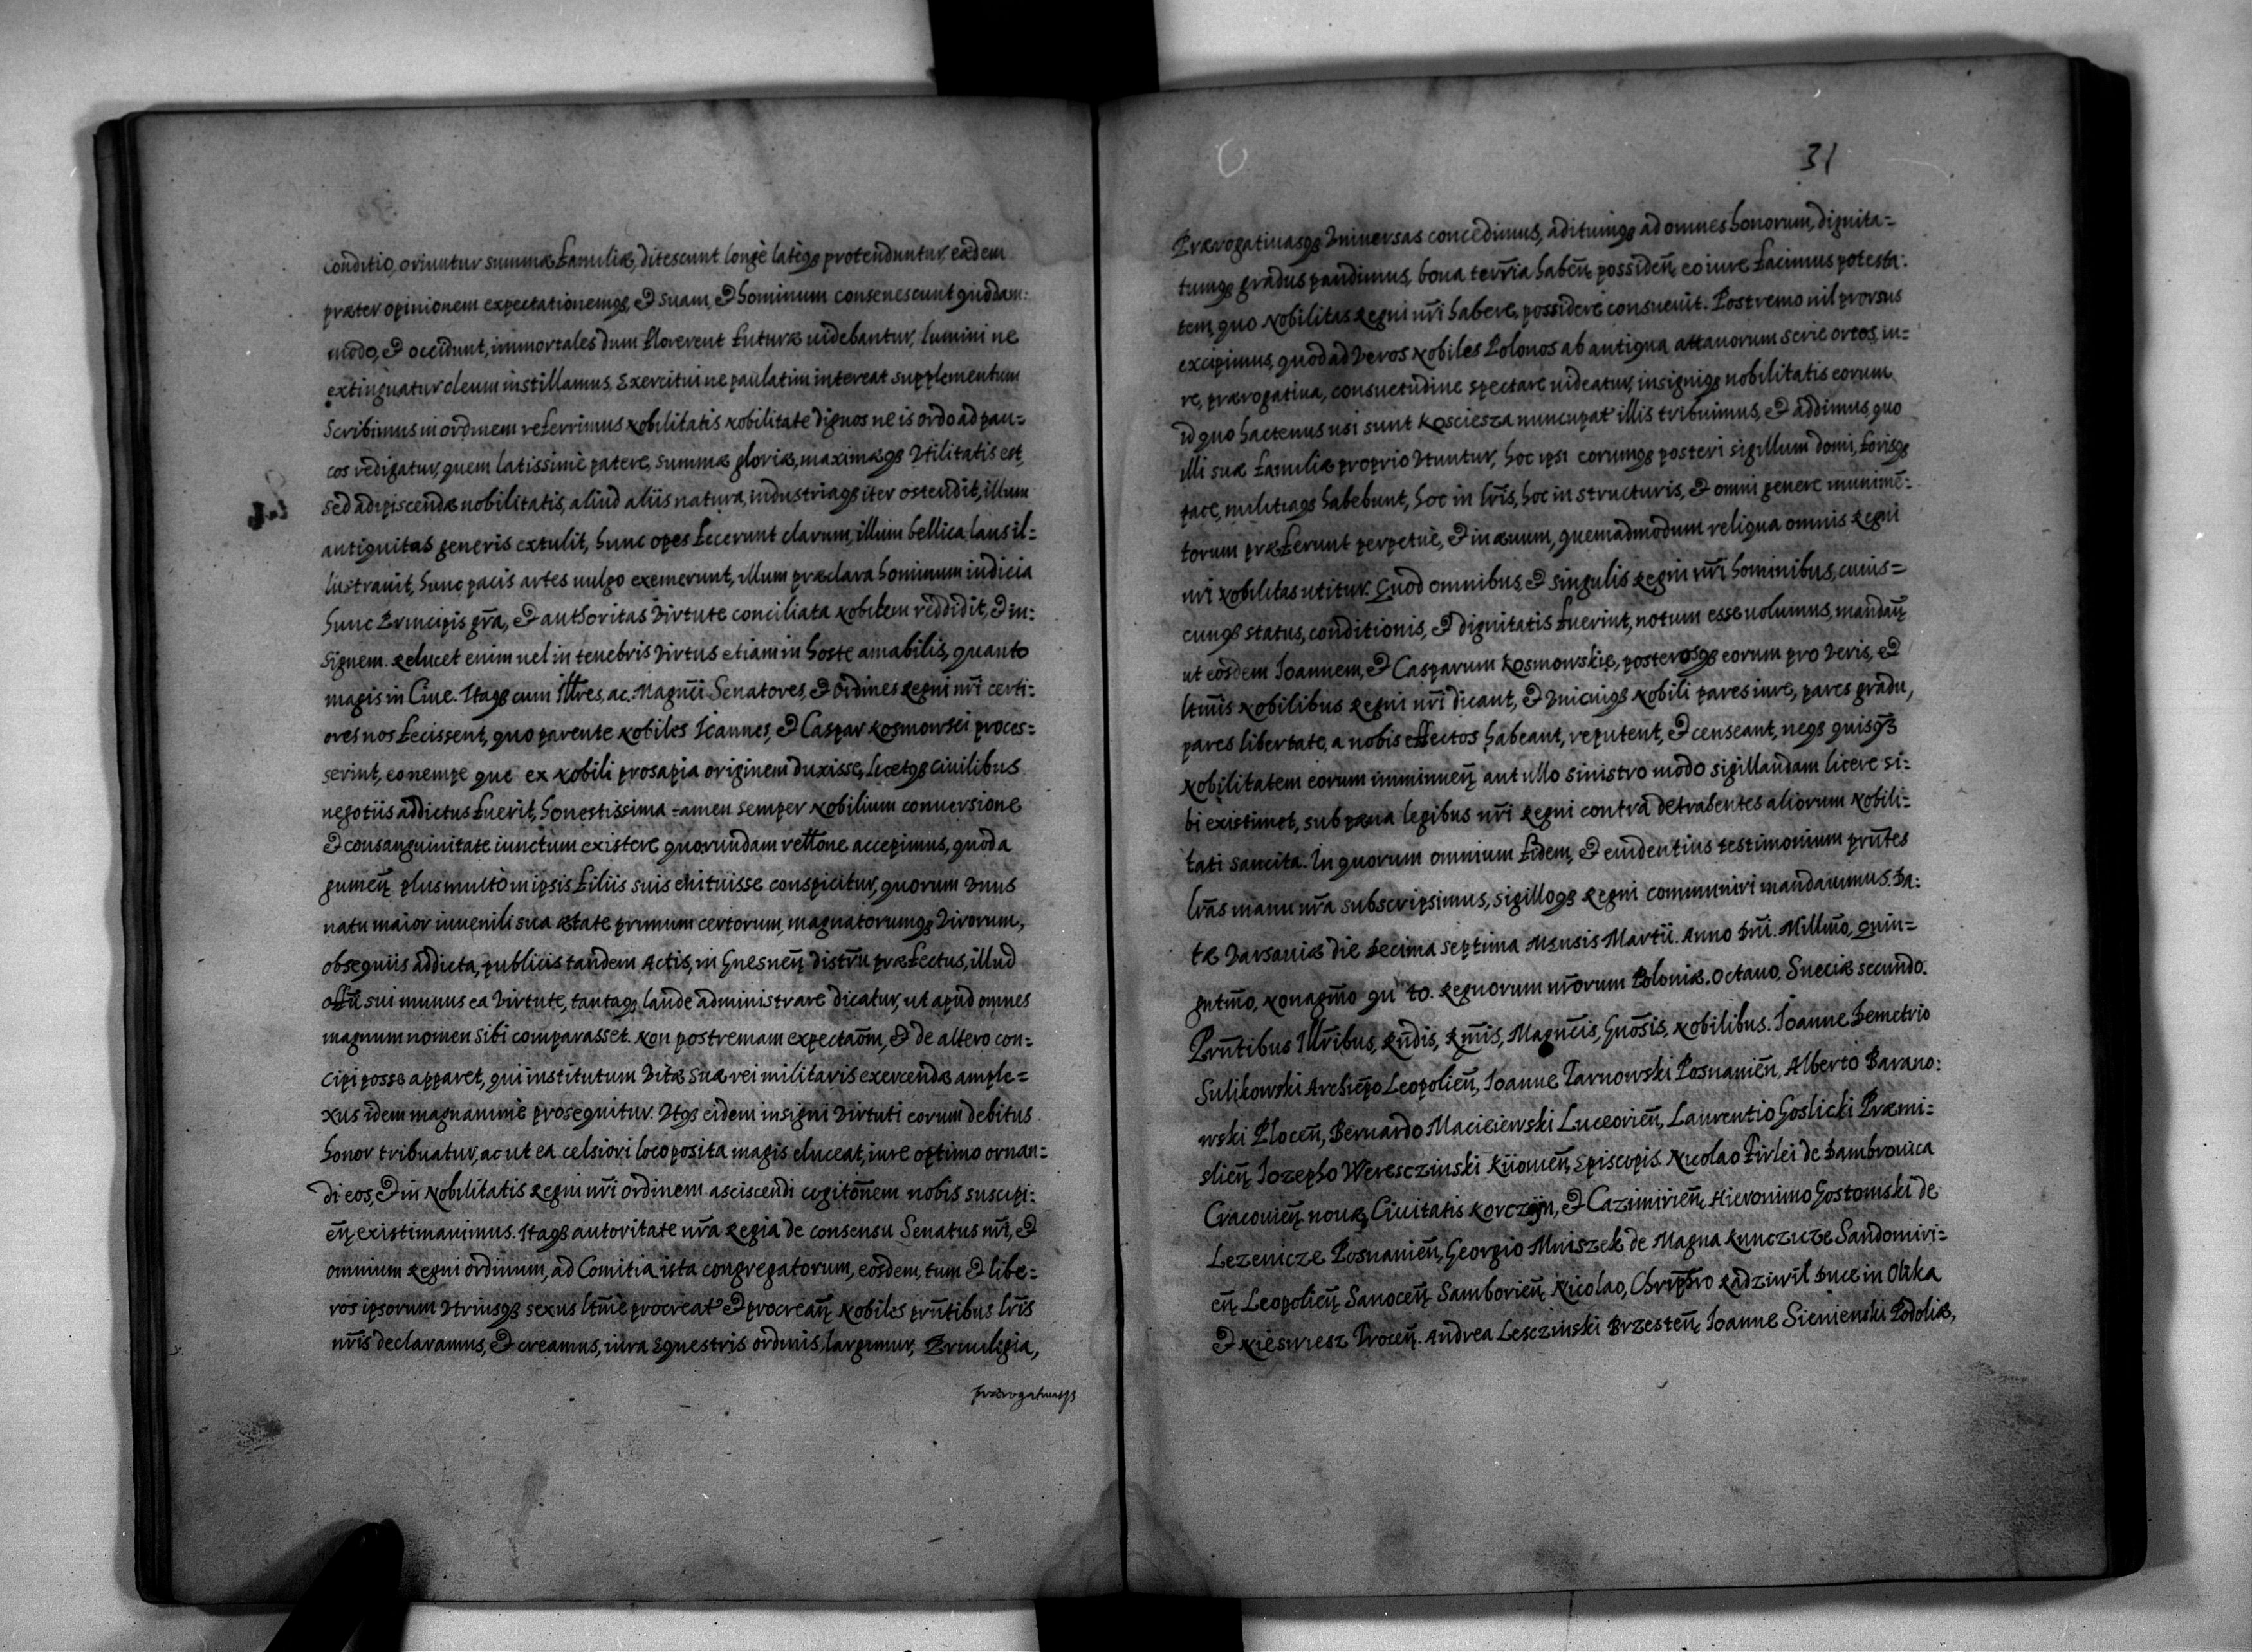 conditio, oriuntur summæ familiæ, ditescunt longè latèqз protenduntur, eædem
præter opinionem expectationemqз, et suam, et hominum consenescunt quodam:
modo, et occidunt, immortales dum florerent futuræ uidebantur, lumini ne
extinguatur oleum instillamus. Exercitui ne paulatim intereat supplementum
scribimus in ordinem referrimus nobilitatis nobilitate dignos ne is ordo ad pau=
cos redigatur, quem latissimè patere, summæ gloriæ, maximæqз Vtilitatis est,
sed adipiscendæ nobilitatis, aliud aliis natura, industriaqз iter ostendit, illum
antiquitas generis extulit, hunc opes fecerunt clarum, illum bellica laus il=
lustrauit, hunc pacis artes uulgo exemerunt, illum præclara hominum iudicia
hunc Principis gr̃a, et authoritas Virtute conciliata nobilem reddidit, et in:
signem. Relucet enim uel in tenebris Virtus etiam in hoste amabilis, quanto
magis in Ciue. Itaqз cum Ill̃res, ac Magn̄ci Senatores, et Ordines Regni nr̄i certi:
ores nos fecissent, quo parente nobiles Ioannes, et Caspar Kosmowsci proces=
serint, eo nempe que ex nobili prosapia originem duxisse, licetqз ciuilibus
negotiis addictus fuerit, honestissima tamen semper nobilium conuersione
et consanguinitate iunctum existere quorundam rel̃tone accepimus, quod a
gumeñ plus multò in ipsis filiis suis enituisse conspicitur, quorum Vnus
natu maior iuuenili sua ætate primum certorum, magnatorumqз Virorum,
obsequiis addicta, publicis tandem Actis, in Gnesneñ distr̄u præfectus, illud
off̃ii sui munus ea Virtute, tantaqз laude administrare dicatur, ut apud omnes
magnum nomen sibi comparasset. Non postremam expectaõm, et de altero con=
cipi posse apparet, qui institutum Vitæ suæ rei militaris exercendæ ample=
xus idem magnanimè prosequitur. Vtqз eidem insigni Virtuti eorum debitus
honor tribuatur, ac ut ea celsiori loco posita magis eluceat, iure optimo ornan=
di eos, et in Nobilitatis Regni nr̄i ordinem asciscendi cogitõnem nobis suscipi:
eñ existimauimus. Itaqз autoritate nr̄a Regia de consensu Senatus nr̄i, et
omnium Regni ordinum, ad Comitia ista congregatorum, eosdem, tum et libe=
ros ipsorum Vtriusqз sexus lt̄mè procreat' et procreañ Nobiles pr̄ntibus lr̄is
nr̄is declaramus, et creamus, iura Equestris ordinis, largimur, Priuilegia,
prærogatiuasqз
31
Prærogatiuasqз Vniuersas concedimus, aditumqз ad omnes honorum, dignita=
tumqз gradus pandimus, bona terr̄ia habeñ, possideñ, eo iure facimus potesta:
tem, quo Nobilitas Regni nr̄i habere, possidere consueuit. Postremo nil prorsus
excipimus, quod ad Veros Nobiles Polonos ab antiqua attauorum serie ortos, iu=
re, prærogatiua, consuetudine spectare uideatur, insigniqз nobilitatis eorum
id quo hactenus usi sunt Kosciesza nuncupat' illis tribuimus, et addimus, quo
illi suæ familiæ proprio Vtuntur, hoc ipsi eorumqз posteri sigillum domi, forisqз
pace, militiaqз habebunt, hoc in lr̄is, hoc in structuris, et omni genere munimē=
torum præferunt perpetuè, et in æuum, quemadmodum reliqua omnis Regni
nr̄i Nobilitas utitur. Quod omnibus, et singulis Regni nr̄i hominibus, cuius=
cunqз status, conditionis, et dignitatis fuerint, notum esse uolumus, mandañ
ut eosdem Ioannem, et Casparum Kosmowskie, posterosqз eorum pro Veris, et
lt̄mis Nobilibus Regni nr̄i dicant, et Vnicuiqз Nobili pares iure, pares gradu,
pares libertate, a nobis effectos habeant, reputent, et censeant, neqз quisqз
Nobilitatem eorum imminueñ aut ullo sinistro modo sigillandam licere si:
bi existimet, sub pæna legibus nr̄i Regni contra detrahentes aliorum Nobili=
tati sancita. In quorum omnium fidem, et euidentius testimonium pr̄ntes
lr̄as manu nr̄a subscripsimus, sigilloqз Regni communiri mandauimus. Da:
tæ Varsauiæ die Decima septima Mensis Martii. Anno Dn̄i. Millm̄o, quin=
gntm̄o, Nonagm̄o qu to. Regnorum nr̄orum Poloniæ. Octauo, Sueciæ secundo.
Pr̄ntibus Ill̃ribus, Rn̄dis, Rm̄is, Magn̄cis, Gn̄osis, Nobilibus. Ioanne Demetrio
Sulikowski Archiep̄o Leopolieñ, Ioanne Tarnowski Posnanieñ, Alberto Barano:
wski Ploceñ, Bernardo Macieiewski Luceorieñ, Laurentio Goslicki Præmi=
slieñ, Iozepho Weresczinski Kiioueñ, Episcopis. Nicolao Firlei de Dambrouica
Cracouieñ, nouæ Ciuitatis Korczÿn, et Cazimirieñ, Hieronimo Gostomski de
Lezenicze Posnanieñ, Georgio Mniszek de Magna Kunczicze Sandomiri=
eñ Leopolieñ Sanoceñ Samborieñ, Nicolao, Chrip̄ro Radziwil Duce in Olika
et Nieswiesz Troceñ. Andrea Lesczinski Brzesteñ, Ioanne Sienienski Podoliæ,